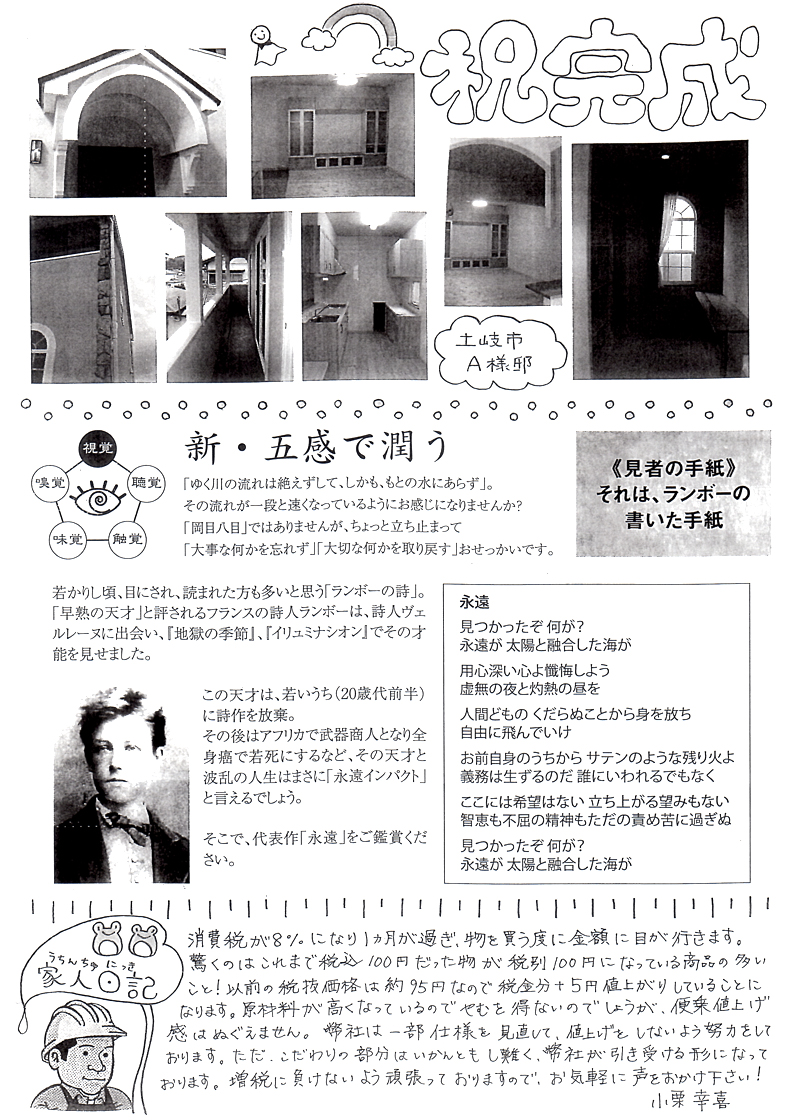 祝完成
土岐市
A様邸
視覚
嗅覚
聴覚
味覚
触覚
新・五感で潤う
「ゆく川の流れは絶えずして、しかも、もとの水にあらず」。
その流れが一段と速くなっているようにお感じになりませんか?
「岡目八目」ではありませんが、ちょっと立ち止まって
「大事な何かを忘れず」「大切な何かを取り戻す」おせっかいです。
《見者の手紙》
それは、ランボーの
書いた手紙
若かりし頃、目にされ、読まれた方も多いと思う「ランボーの詩」。
「早熟の天才」と評されるフランスの詩人ランボーは、詩人ヴェ
ルレーヌに出会い、『地獄の季節』、『イリュミナシオン』でその才
能を見せました。
この天才は、若いうち(20歳代前半)
に詩作を放棄。
その後はアフリカで武器商人となり全
身癌で若死にするなど、その天才と
波乱の人生はまさに「永遠インパクト」
と言えるでしょう。
そこで、代表作「永遠」をご鑑賞くだ
さい。
永遠
見つかったぞ 何が?
永遠が 太陽と融合した海が
用心深い心よ懺悔しよう
虚無の夜と灼熱の昼を
人間どもの くだらぬことから身を放ち
自由に飛んでいけ
お前自身のうちから サテンのような残り火よ
義務は生ずるのだ 誰にいわれるでもなく
ここには希望はない 立ち上がる望みもない
智恵も不屈の精神もただの責め苦に過ぎぬ
見つかったぞ 何が?
永遠が 太陽と融合した海が
うちんちゅ にっき
家人日記
消費税が8%になり1ヵ月が過ぎ、物を買う度に金額に目が行きます。
驚くのはこれまで税込100円だった物が税別100円になっている商品の多い
こと!以前の税抜価格は約95円なので税金分+5円値上がりしていることに
なります。原材料が高くなっているのでやむを得ないのでしょうが、便乗値上げ
感はぬぐえません。弊社は一部仕様を見直して、値上げをしないよう努力をして
おります。ただ、こだわりの部分はいかんともし難く、弊社が引き受ける形になって
おります。増税に負けないよう頑張っておりますので、お気軽に声をおかけ下さい!
小栗幸喜